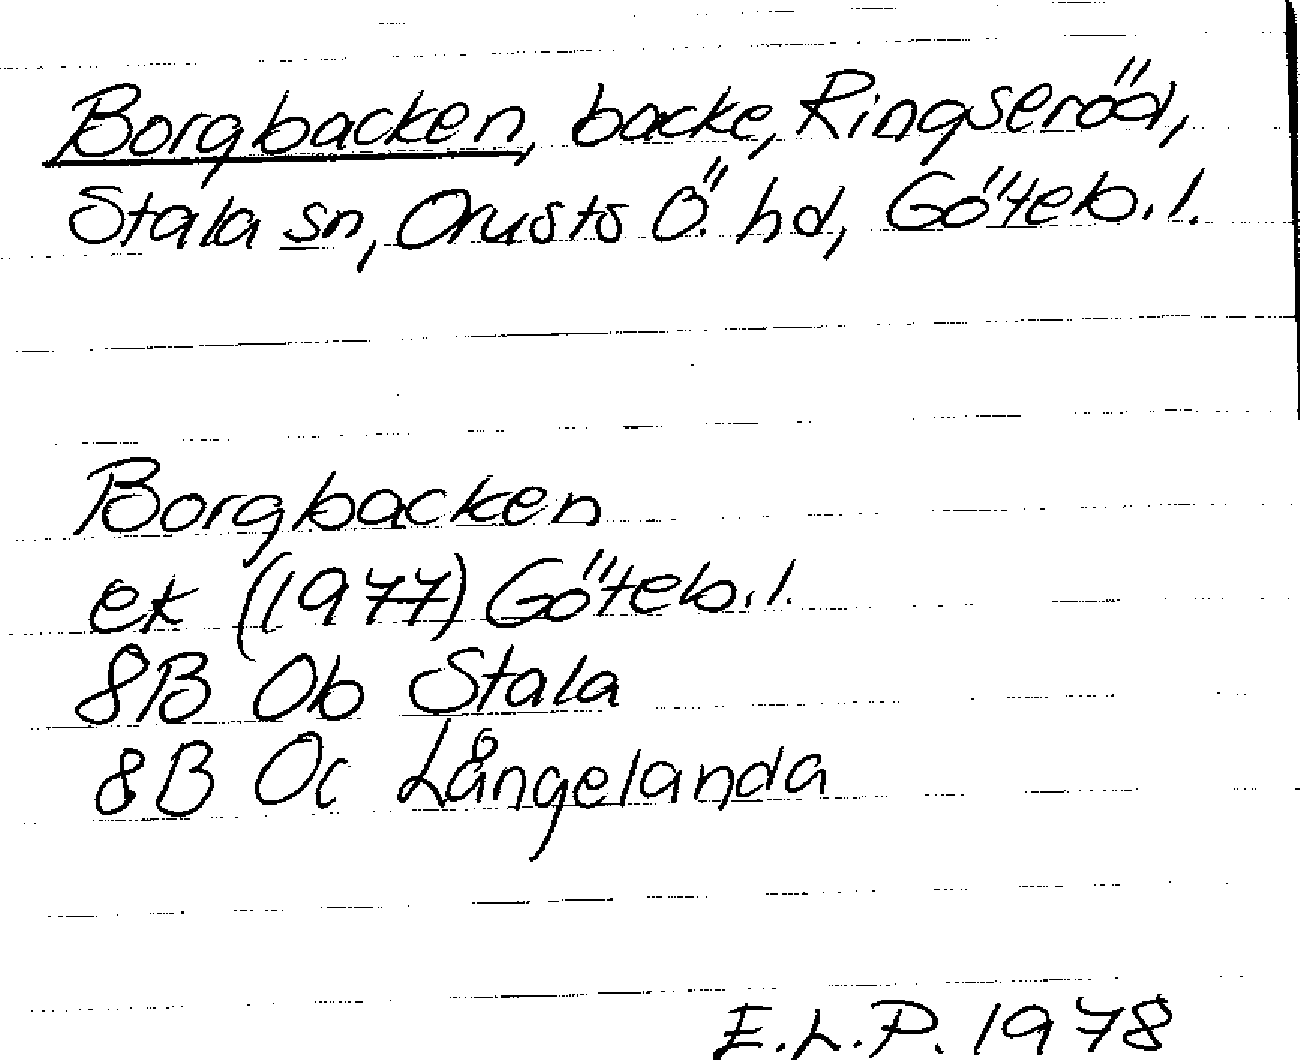 Borgbacken, backe, Ringseröd,
Stala sn, Orusts Ö. hd, Göteb.l.
Borgbacken
ek (1977) Göteb.l.
8B 0b Stala
8B 0c Långelanda
E.L.P. 1978